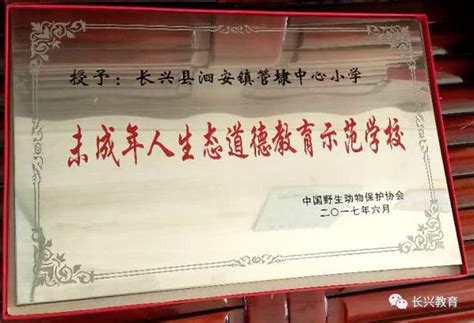 授予：长兴县泗安镇管埭中心小学
未成年人生态道德教育示范学校
中国野生动物保护协会
二〇一七年六月
长兴教育